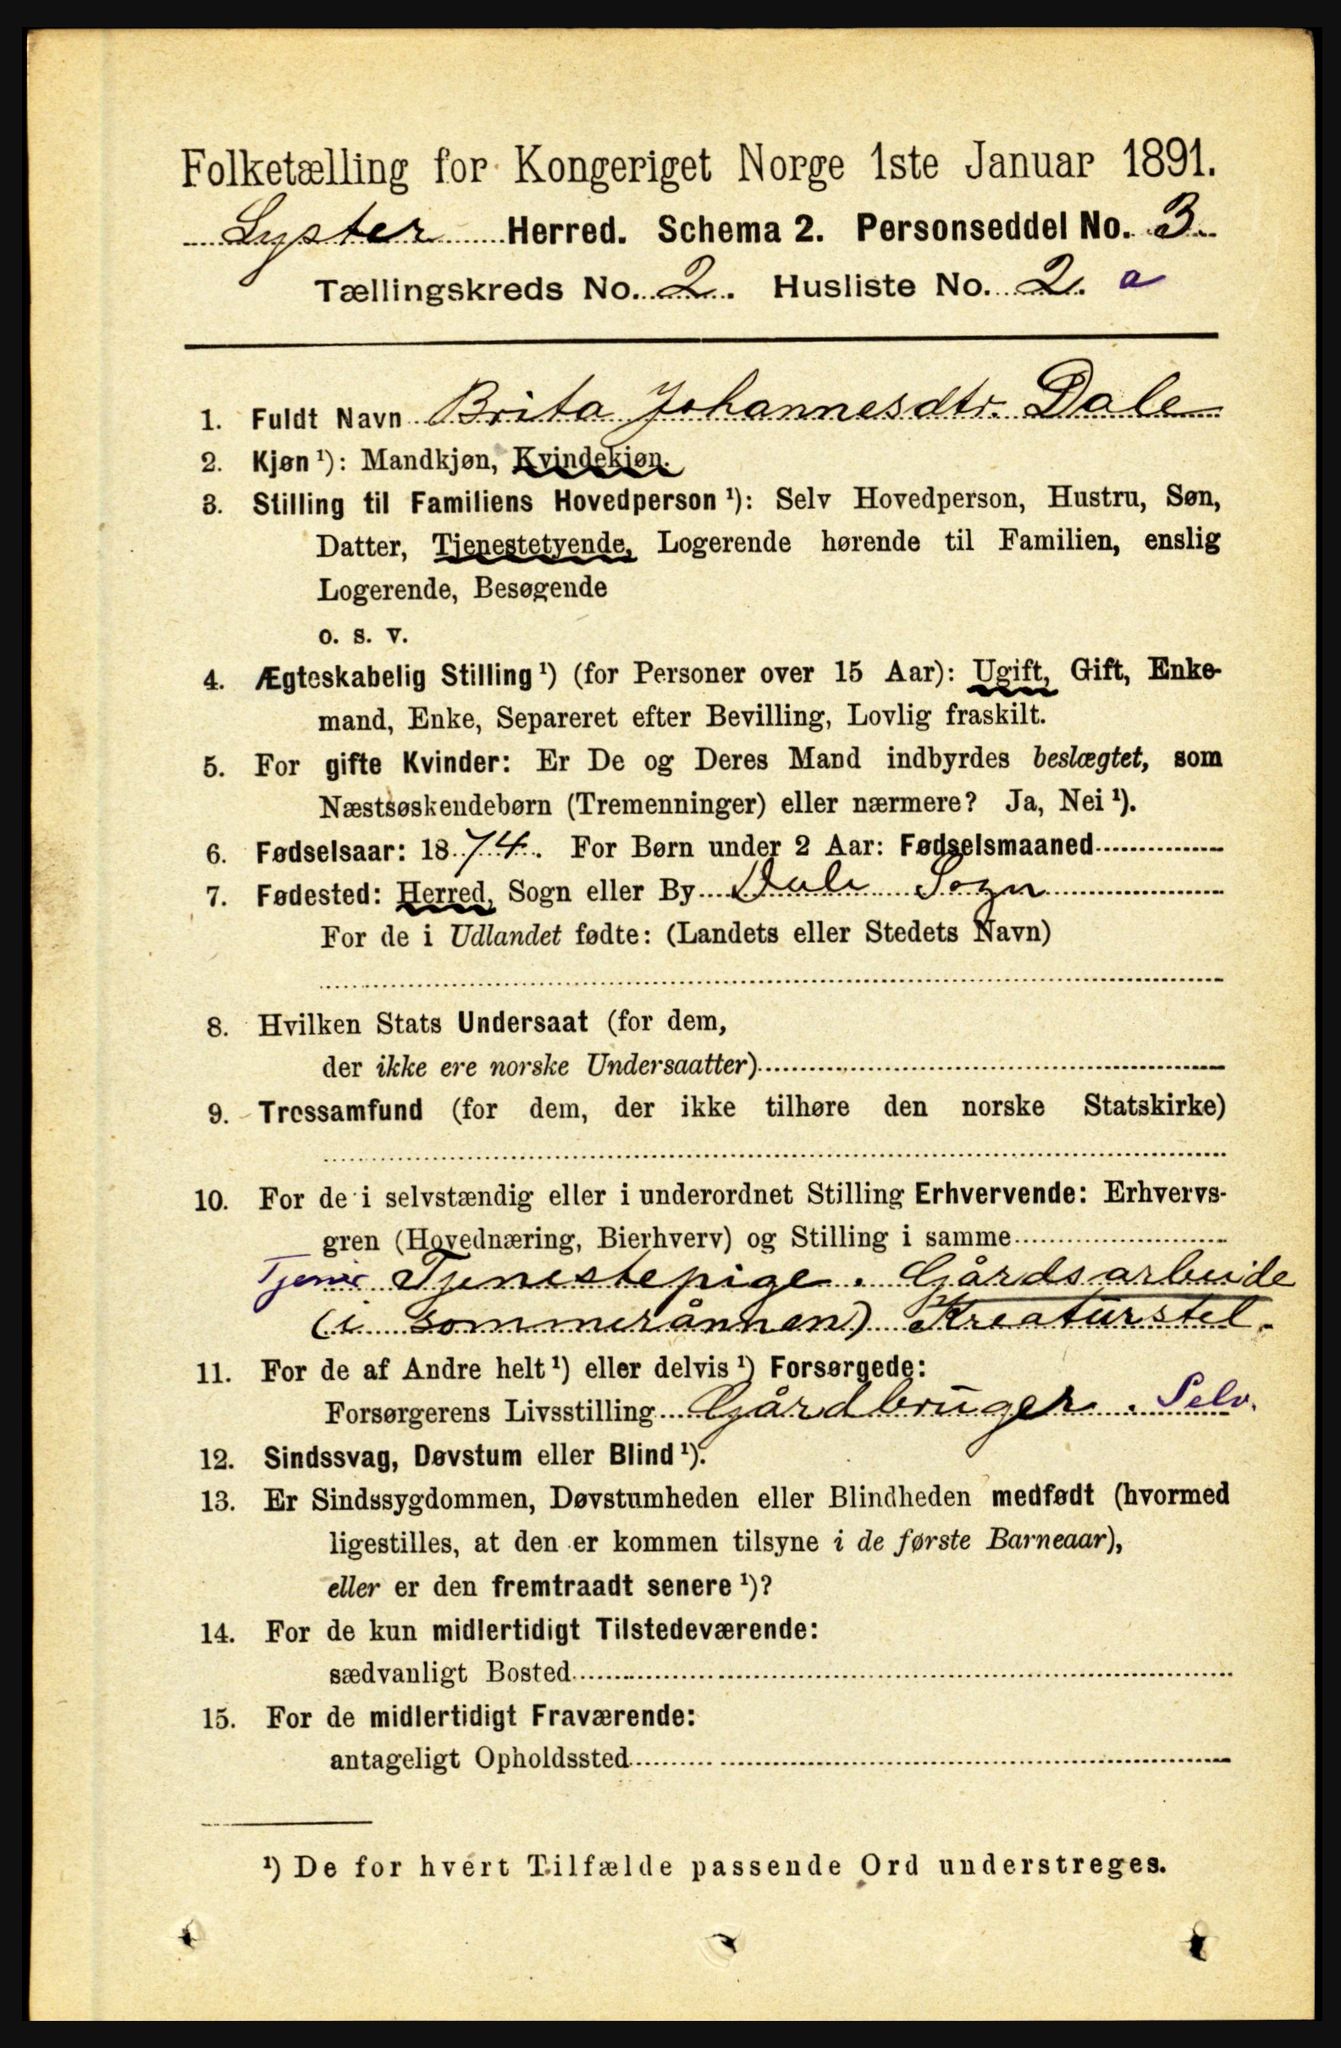 Folketælling for Kongeriget Norge 1ste Januar 1891.
Lyster Herred. Schema 2. Personseddel No. 3
Tællingskreds No. 2. Husliste No. 2. a
1. Fuldt Navn Brita Johannesdtr. Dale
2. Kjøn ¹): Mandkjøn, Kvindekjøn.
3. Stilling til Familiens Hovedperson ¹): Selv Hovedperson, Hustru, Søn,
Datter, Tjenestetyende, Logerende hørende til Familien, enslig
Logerende, Besøgende
o. s. v.
4. Ægteskabelig Stilling ¹) (for Personer over 15 Aar): Ugift, Gift, Enke-
mand, Enke, Separeret efter Bevilling, Lovlig fraskilt.
5. For gifte Kvinder: Er De og Deres Mand indbyrdes beslægtet, som
Næstsøskendebørn (Tremenninger) eller nærmere? Ja, Nei ¹).
6. Fødselsaar: 1874. For Børn under 2 Aar: Fødselsmaaned
7. Fødested: Herred, Sogn eller By Dale Sogn
For de i Udlandet fødte: (Landets eller Stedets Navn)
8. Hvilken Stats Undersaat (for dem,
der ikke ere norske Undersaatter)
9. Trossamfund (for dem, der ikke tilhøre den norske Statskirke)
10. For de i selvstændig eller i underordnet Stilling Erhvervende: Erhvervs-
gren (Hovednæring, Bierhverv) og Stilling i samme
Tjener Tjenestepige. Gårdsarbeide
(i sommerånnen) Kreaturstel.
11. For de af Andre helt ¹) eller delvis ¹) Forsørgede:
Forsørgerens Livsstilling Gårdbruger. Selv.
12. Sindssvag, Døvstum eller Blind ¹).
13. Er Sindssygdommen, Døvstumheden eller Blindheden medfødt (hvormed
ligestilles, at den er kommen tilsyne i de første Barneaar),
eller er den fremtraadt senere ¹)?
14. For de kun midlertidigt Tilstedeværende:
sædvanligt Bosted
15. For de midlertidigt Fraværende:
antageligt Opholdssted
¹) De for hvert Tilfælde passende Ord understreges.